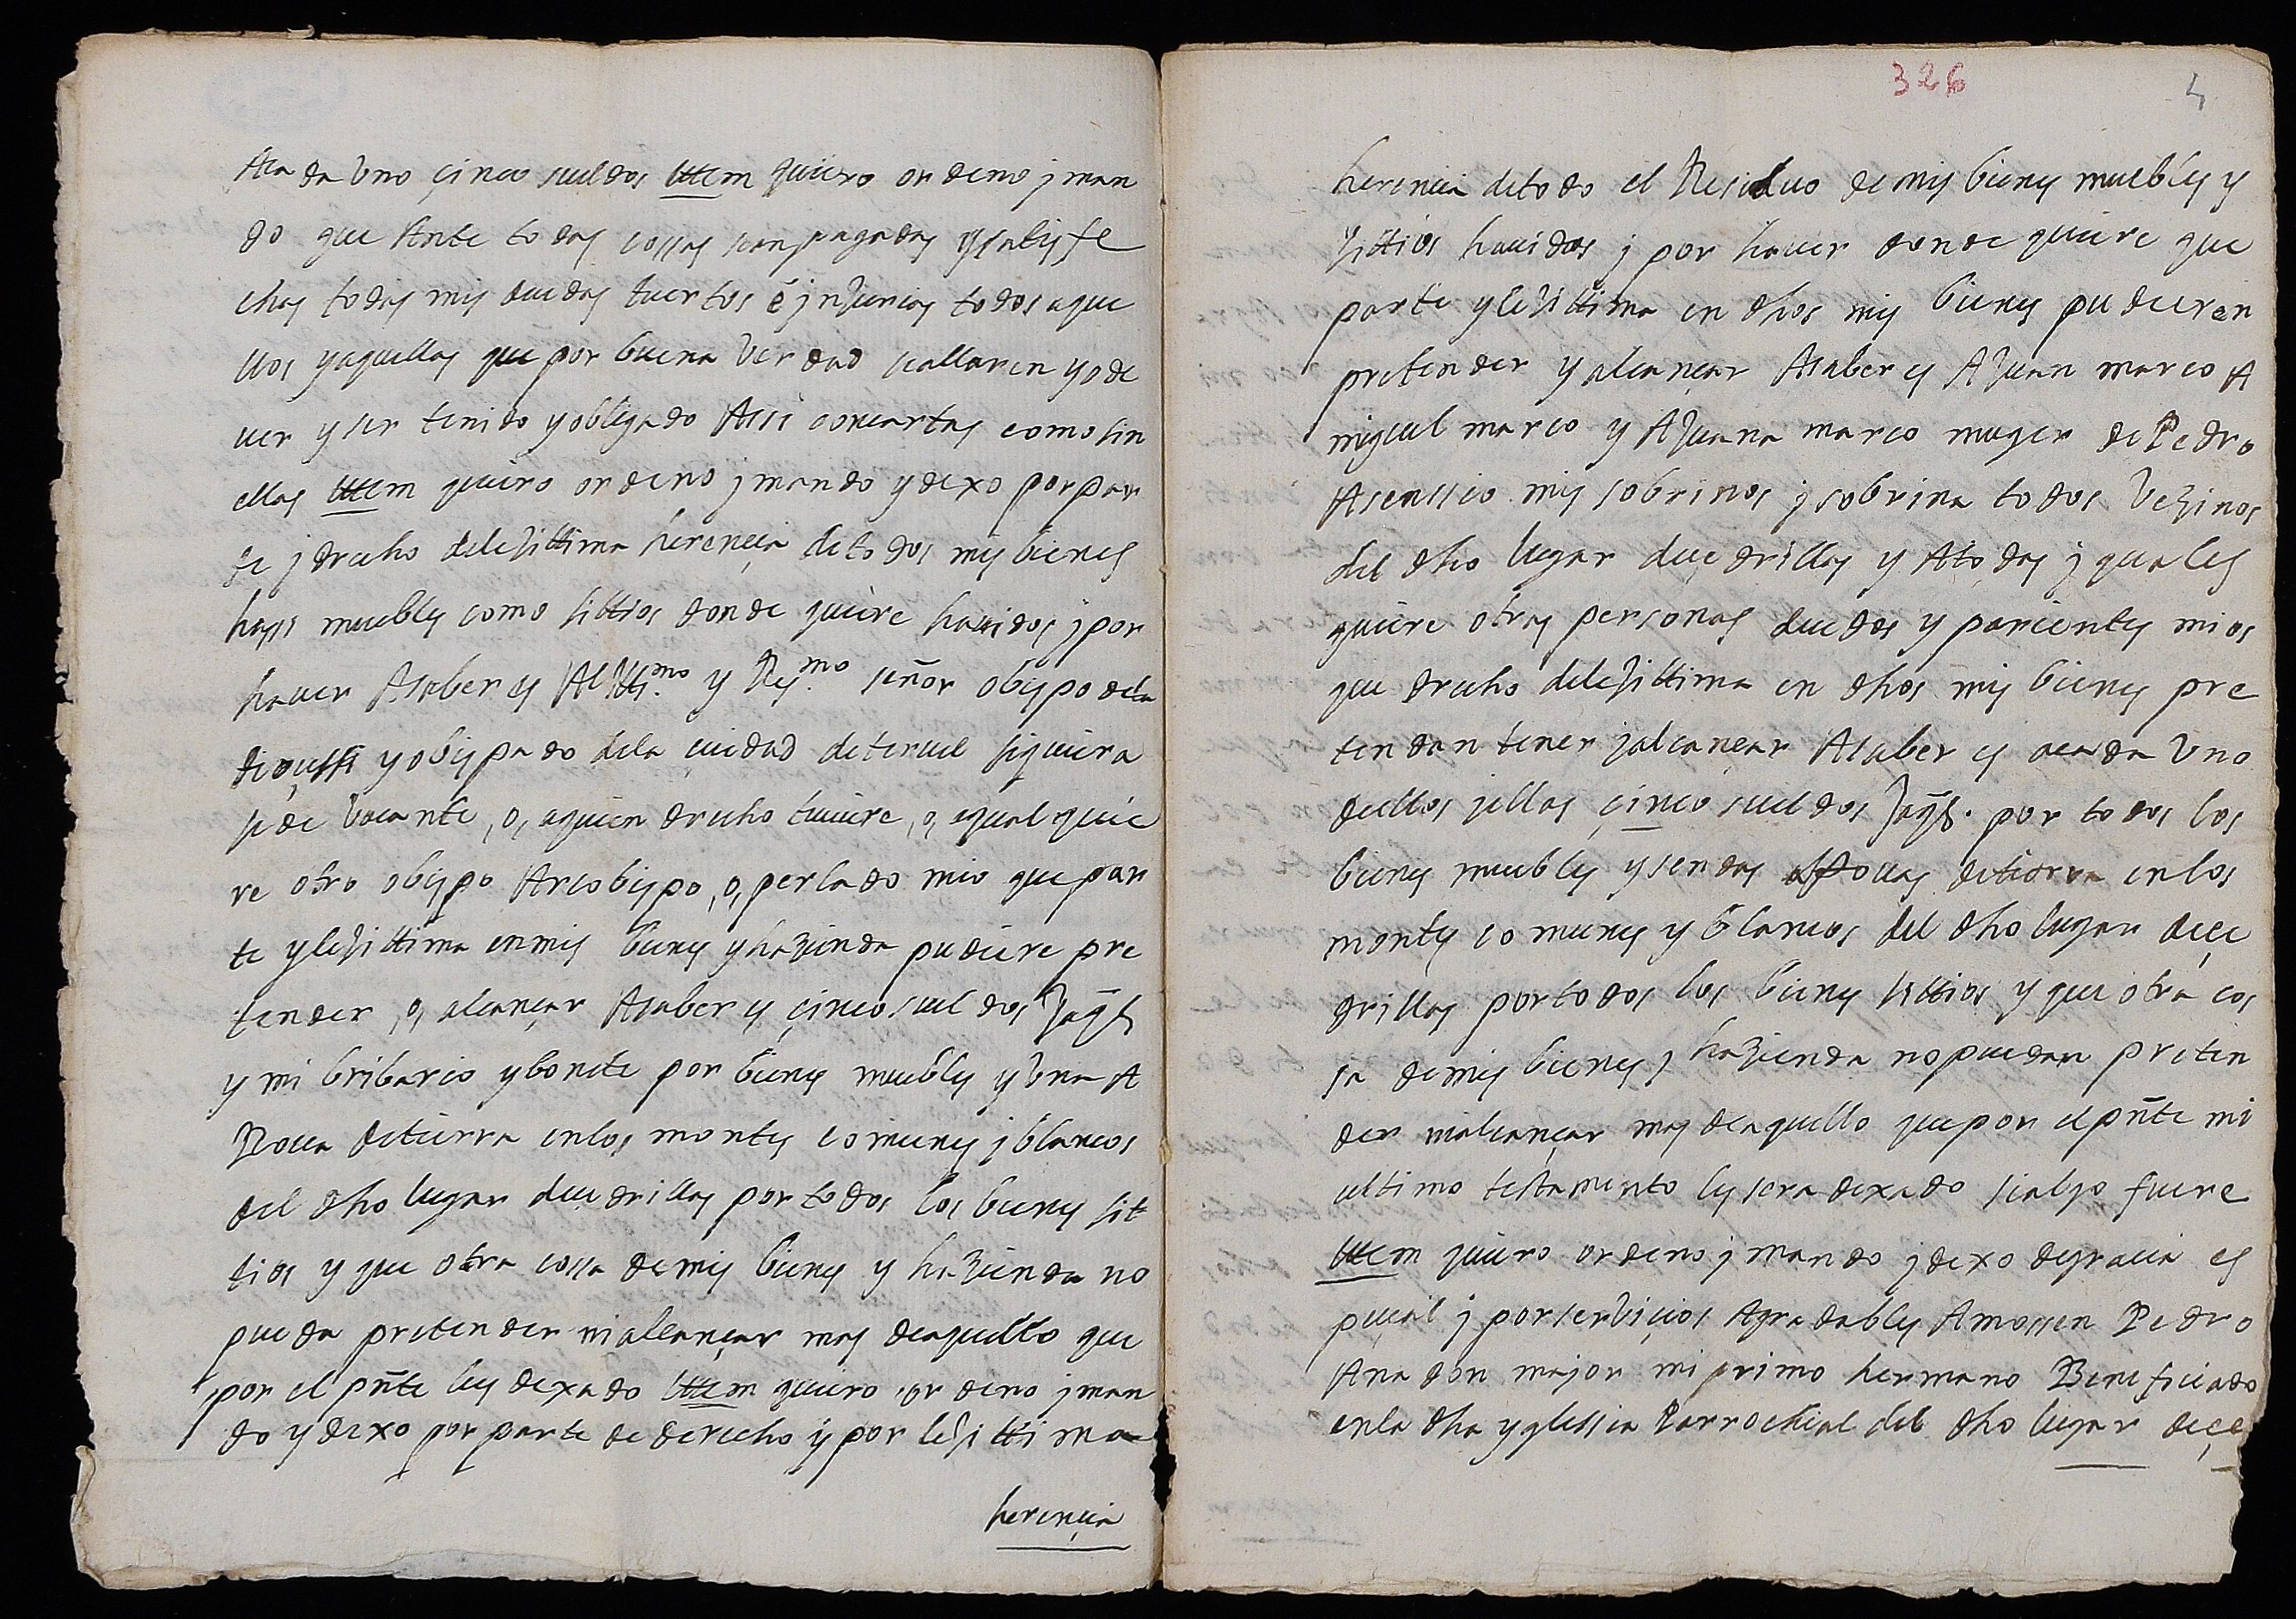 Acada Uno çinco sueldos Ittem quiero ordeno j man
do que Ante todas cossas sean pagadas y satisfe
chas todas mis deudas tuertos e jnJurias todos aque
llos yaquellas que por buena Verdad seallaren yo de
uer y ser tenido y obligado Assi concartas como sin
ellas Ittem quiero ordeno j mando y dexo por par
te j drecho deleJittima herençia de todos mis bienes
hassi muebles como sittios donde quiere hauidos j por
hauer Asaber es Al Ill.mo y R.mo señor obispo dela
dioçessi y obispado dela ciudad de teruel siquiera
sede Vacante, o, aquien drecho tuuiere, o, aqualquie
re otro obispo Arcobispo, o, perlado mio que par
te y leJittima en mis bienes y hazienda pudiere pre
tender, o, alcançar Asaber es çinco sueldos Jaqs
y mi bribario y bonete por bienes muebles y Una A
Roua de tierra enlos montes comunes j blancos
del dho lugar deuçedrillas por todos los bienes sit
tios y que otra cossa de mis bienes y hazienda no
pueda pretender ni alcançar mas de aquello que
por el pñte les dexado Ittem quiero ordeno j man
do y dexo por parte de derecho y por leJittima
herençia
326
4
herencia de todo el Residuo de mis bienes muebles y
sittios hauidos j por hauer donde quiere que
parte y leJittima en dhos mis bienes pudieren
pretender y alcançar Asaber es A Juan marco A
miguel marco y A Juana marco muger de Pedro
Asenssio mis sobrinos j sobrina todos Vezinos
del dho lugar deçedrillas y Atodas j quales
quiere otras personas deudos y parientes mios
que drecho deleJittima en dhos mis bienes pre
tendan tener j alcançar Asaber es acada Uno
dellos j ellas çinco sueldos Jaqs. por todos los
bienes muebles y sendas Rouas de tierra enlos
montes comunes y blancos del dho lugar deçe
drillas por todos los bienes sittios y que otra cos
sa de mis bienes j hazienda no puedan preten
der nialcançar mas deaquello que por el pñte mi
ultimo testamento les sera dexado sialgo fuere
Ittem quiero ordeno j mando j dexo degracia es
peçial j por serbiçios Agradables Amossen Pedro
Anadon major mi primo hermano Beneficiado
enla dha yglessia Parrochial del dho lugar deçe